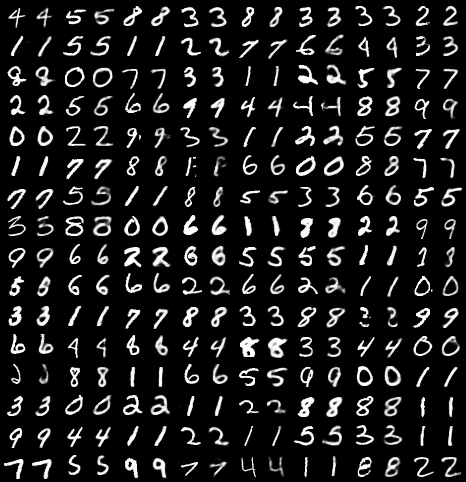 4 4 5 5 8 8 3 3 8 8 3 3 3 3 2 2
1 1 5 5 1 1 2 2 7 7 6 6 4 4 3 3
8 8 0 0 7 7 3 3 1 1 2 2 5 5 7 7
2 2 5 5 6 6 9 9 4 4 4 4 8 8 9 9
0 0 2 2 9 9 3 3 1 1 2 2 5 5 7 7
1 1 7 7 8 8 1 6 6 0 0 8 8 7 7
7 7 5 5 1 1 8 8 5 5 3 3 6 6 5 5
3 3 8 8 0 0 6 6 1 1 8 8 2 2 9 9
9 9 6 6 2 2 6 6 5 5 5 5 1 1 1
5 5 6 6 6 6 2 2 6 6 2 2 1 1 0 0
3 3 1 1 7 7 8 8 3 3 8 8 9 9
6 6 4 4 8 8 4 4 8 8 3 3 4 4 0 0
8 8 1 1 6 6 5 5 9 9 0 0 1 1
3 3 0 0 2 2 1 1 2 2 8 8 8 8 1 1
9 9 4 4 1 1 2 2 1 1 5 5 3 3 1 1
7 7 5 5 9 9 7 7 4 4 1 1 8 8 2 2